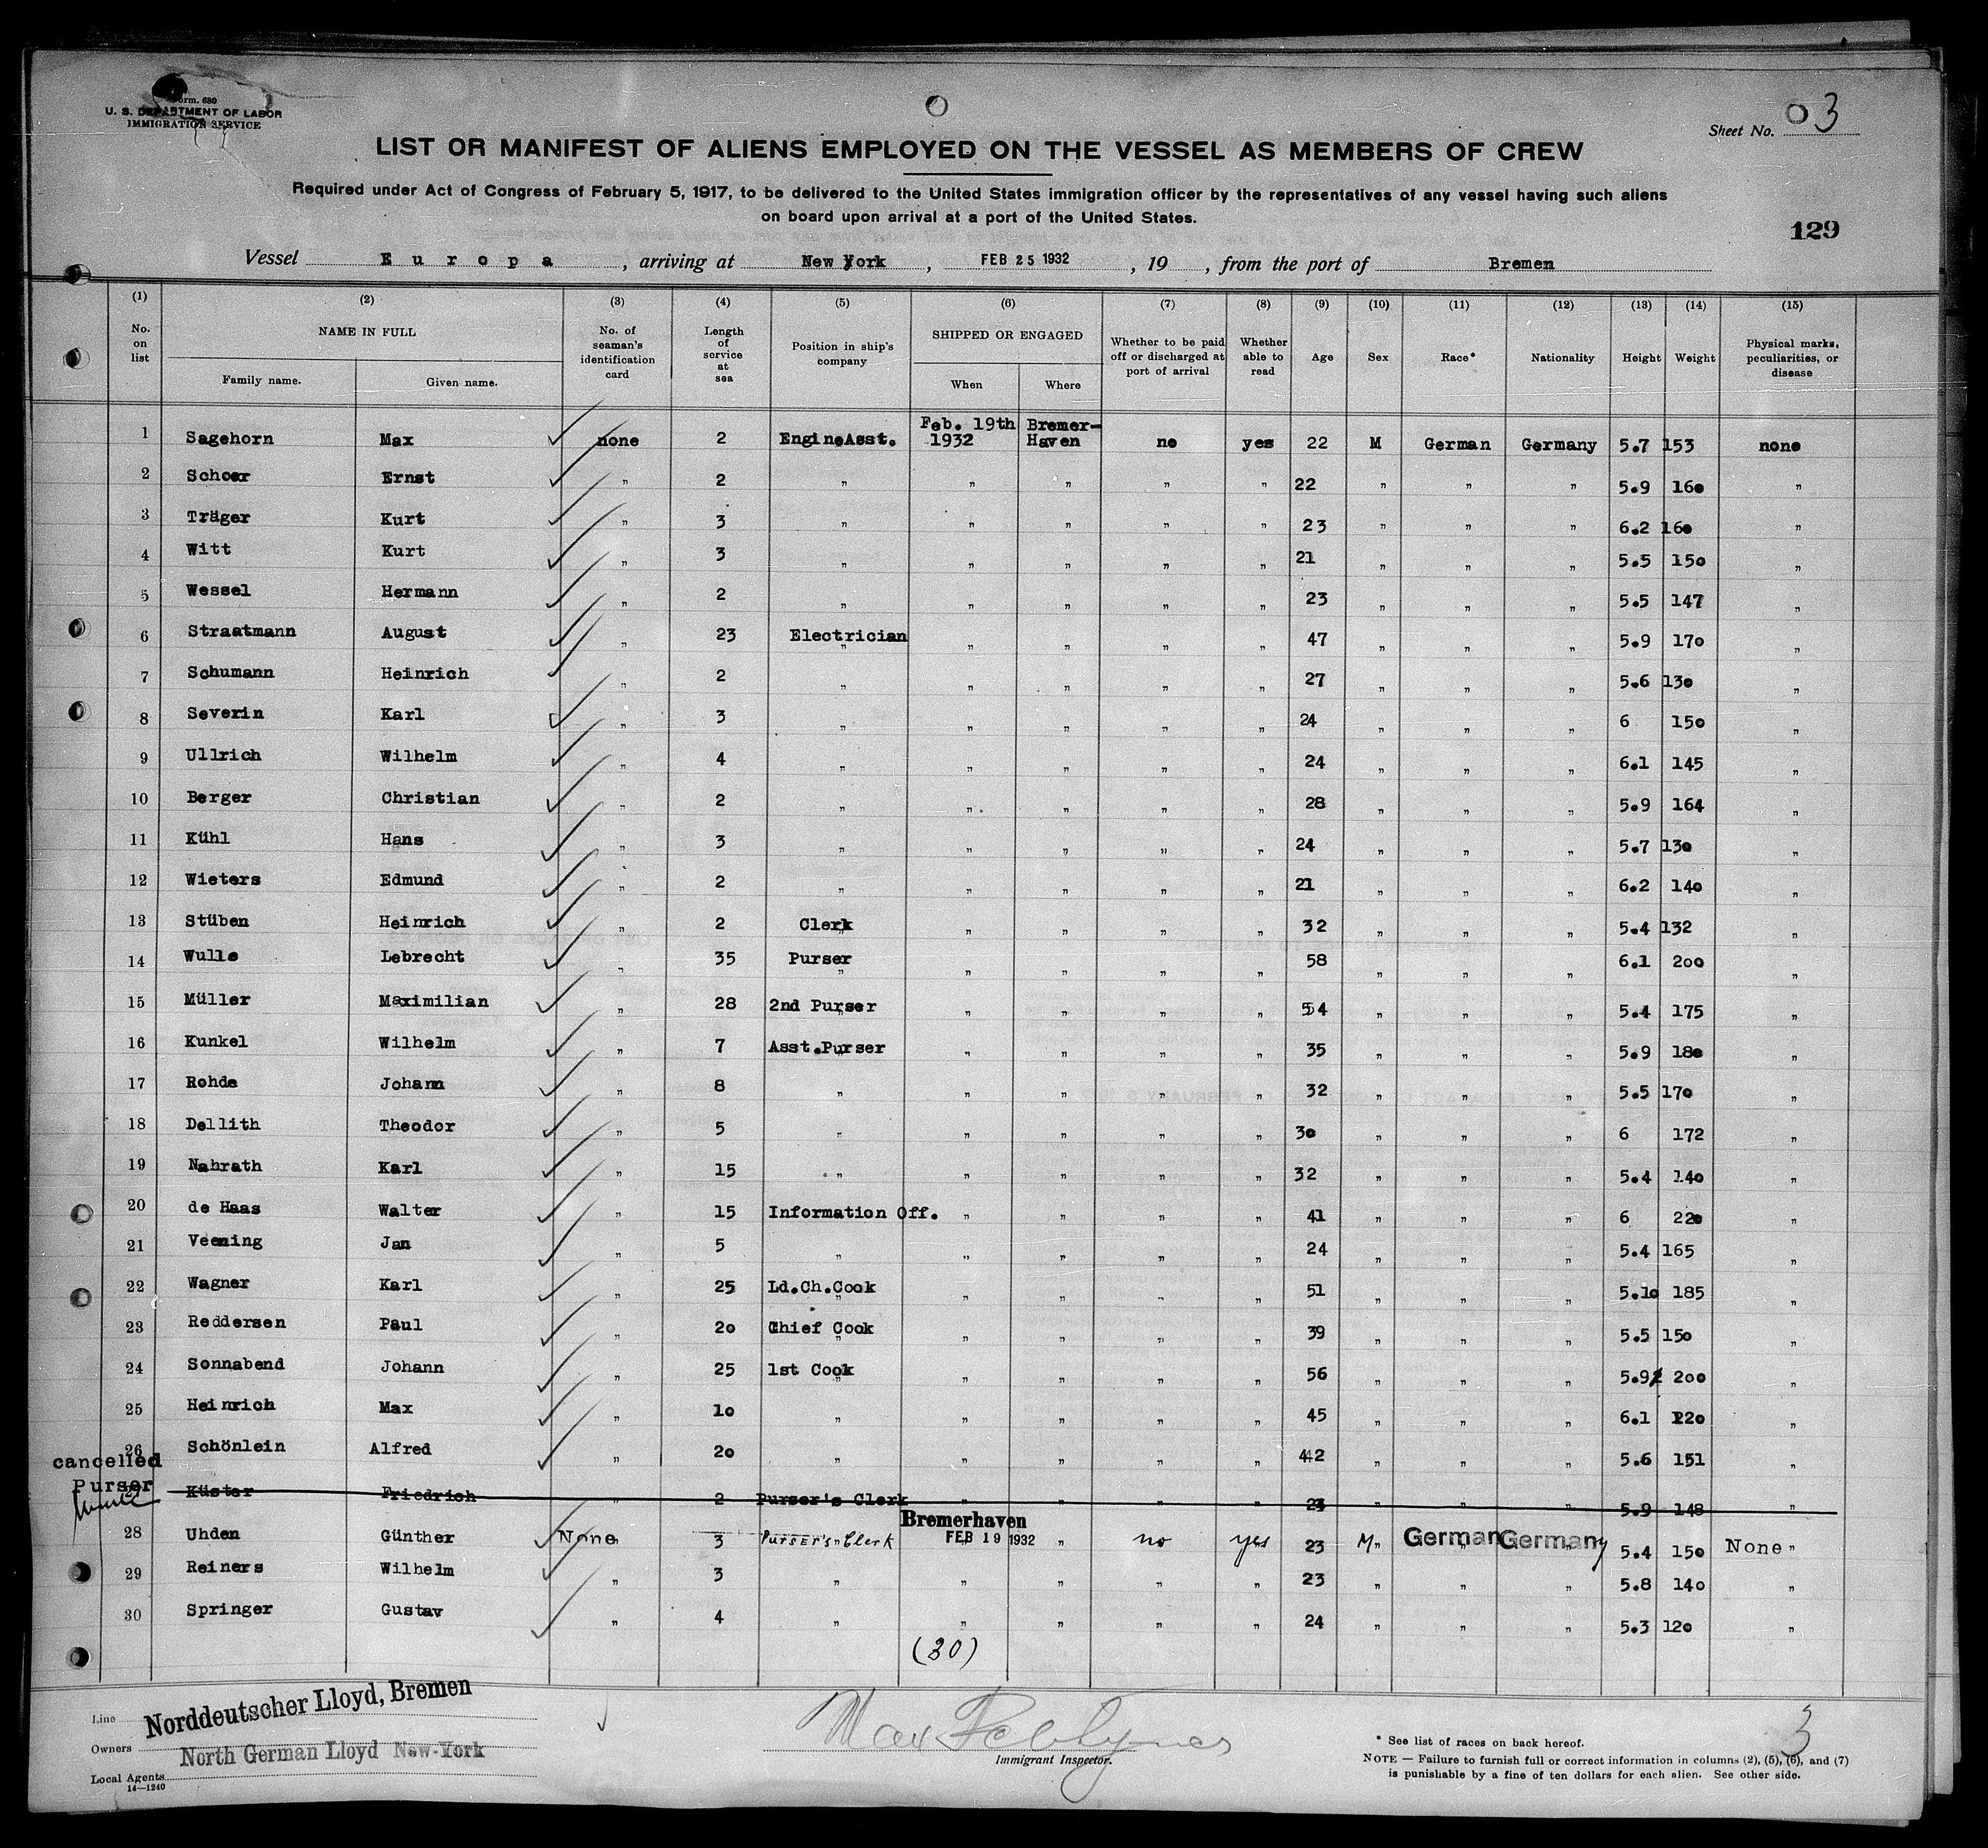 Form. 680
U. S. DEPARTMENT OF LABOR
IMMIGRATION SERVICE
Sheet No. 3
LIST OR MANIFEST OF ALIENS EMPLOYED ON THE VESSEL AS MEMBERS OF CREW
Required under Act of Congress of February 5, 1917, to be delivered to the United States immigration officer by the representatives of any vessel having such aliens
on board upon arrival at a port of the United States.
129
Vessel Europa, arriving at New York, FEB 25 1932, 19 , from the port of Bremen
(1) (2) (3) (4) (5) (6) (7) (8) (9) (10) (11) (12) (13) (14) (15)
No. on list NAME IN FULL Family name. Given name. No. of seaman's identification card Length of service at sea Position in ship's company SHIPPED OR ENGAGED When Where Whether to be paid off or discharged at port of arrival Whether able to read Age Sex Race* Nationality Height Weight Physical marks, peculiarities, or disease
1 Sagehorn Max none 2 Engine Asst. Feb. 19th 1932 Bremer-Haven no yes 22 M German Germany 5.7 153 none
2 Schoer Ernst " 2 " " " " " 22 " " " 5.9 160 "
3 Träger Kurt " 3 " " " " " 23 " " " 6.2 160 "
4 Witt Kurt " 3 " " " " " 21 " " " 5.5 150 "
5 Wessel Hermann " 2 " " " " " 23 " " " 5.5 147 "
6 Straatmann August " 23 Electrician " " " " 47 " " " 5.9 170 "
7 Schumann Heinrich " 2 " " " " " 27 " " " 5.6 130 "
8 Severin Karl " 3 " " " " " 24 " " " 6 150 "
9 Ullrich Wilhelm " 4 " " " " " 24 " " " 6.1 145 "
10 Berger Christian " 2 " " " " " 28 " " " 5.9 164 "
11 Kühl Hans " 3 " " " " " 24 " " " 5.7 130 "
12 Wieters Edmund " 2 " " " " " 21 " " " 6.2 140 "
13 Stüben Heinrich " 2 Clerk " " " " 32 " " " 5.4 132 "
14 Wulle Lebrecht " 35 Purser " " " " 58 " " " 6.1 200 "
15 Müller Maximilian " 28 2nd Purser " " " " 54 " " " 5.4 175 "
16 Kunkel Wilhelm " 7 Asst.Purser " " " " 35 " " " 5.9 180 "
17 Rohde Johann " 8 " " " " " 32 " " " 5.5 170 "
18 Dellith Theodor " 5 " " " " " 30 " " " 6 172 "
19 Nahrath Karl " 15 " " " " " 32 " " " 5.4 140 "
20 de Haas Walter " 15 Information Off. " " " " 41 " " " 6 220 "
21 Veening Jan " 5 " " " " " 24 " " " 5.4 165 "
22 Wagner Karl " 25 Ld.Ch.Cook " " " " 51 " " " 5.10 185 "
23 Reddersen Paul " 20 Chief Cook " " " " 39 " " " 5.5 150 "
24 Sonnabend Johann " 25 1st Cook " " " " 56 " " " 5.9 200 "
25 Heinrich Max " 10 " " " " " 45 " " " 6.1 220 "
26 Schönlein Alfred " 20 " " " " " 42 " " " 5.6 151 "
cancelled
Purser
27 Küster Friedrich " 2 Purser's Clerk " " " " 23 " " " 5.9 148 "
28 Uhden Günther None 3 Purser's Clerk Bremerhaven FEB 19 1932 " no yes 23 M German Germany 5.4 150 None "
29 Reiners Wilhelm " 3 " " " " " 23 " " " 5.8 140 "
30 Springer Gustav " 4 " " " " " 24 " " " 5.3 120 "
(30)
Line Norddeutscher Lloyd, Bremen
Owners North German Lloyd New-York
Local Agents
14—1240
Max
Immigrant Inspector.
3
* See list of races on back hereof.
NOTE — Failure to furnish full or correct information in columns (2), (5), (6), and (7)
is punishable by a fine of ten dollars for each alien. See other side.